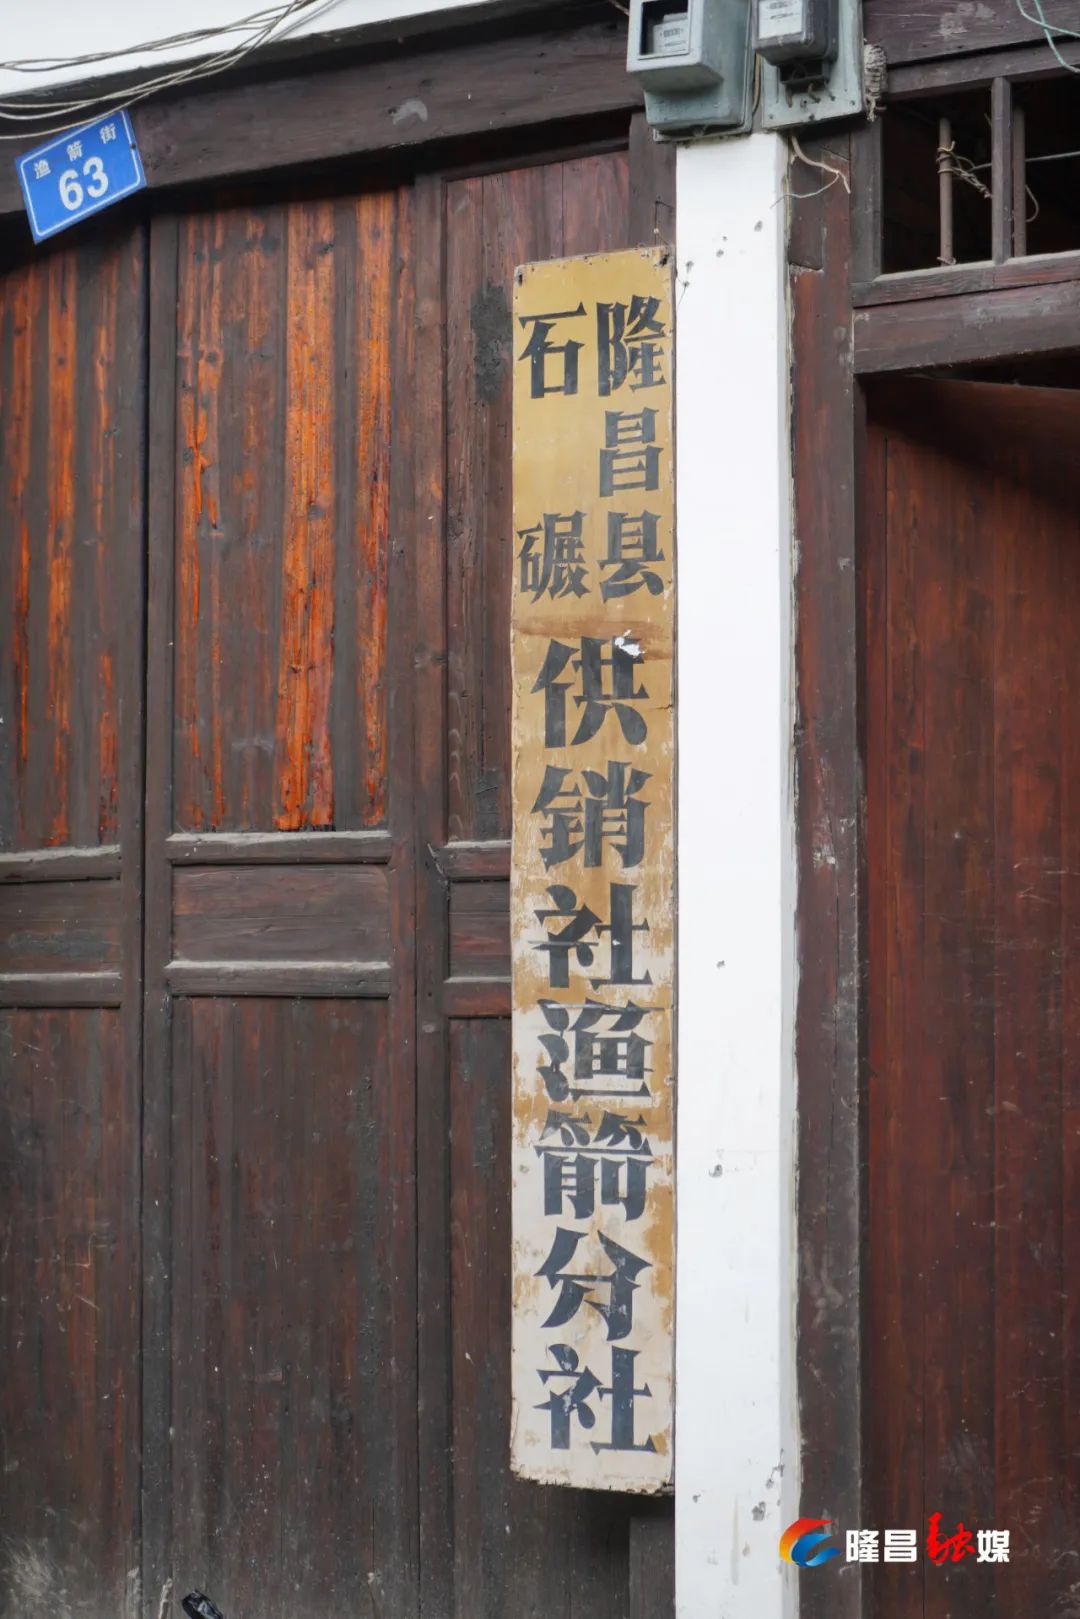 渔箭街
63
隆昌县
石碾
供销社渔箭分社
隆昌融媒